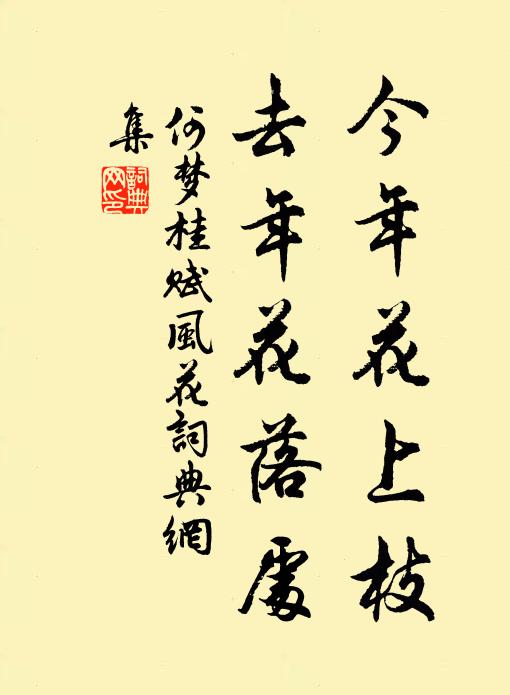 今年花上枝
去年花落處
何梦桂赋風花詞典網
集
詞典
网印